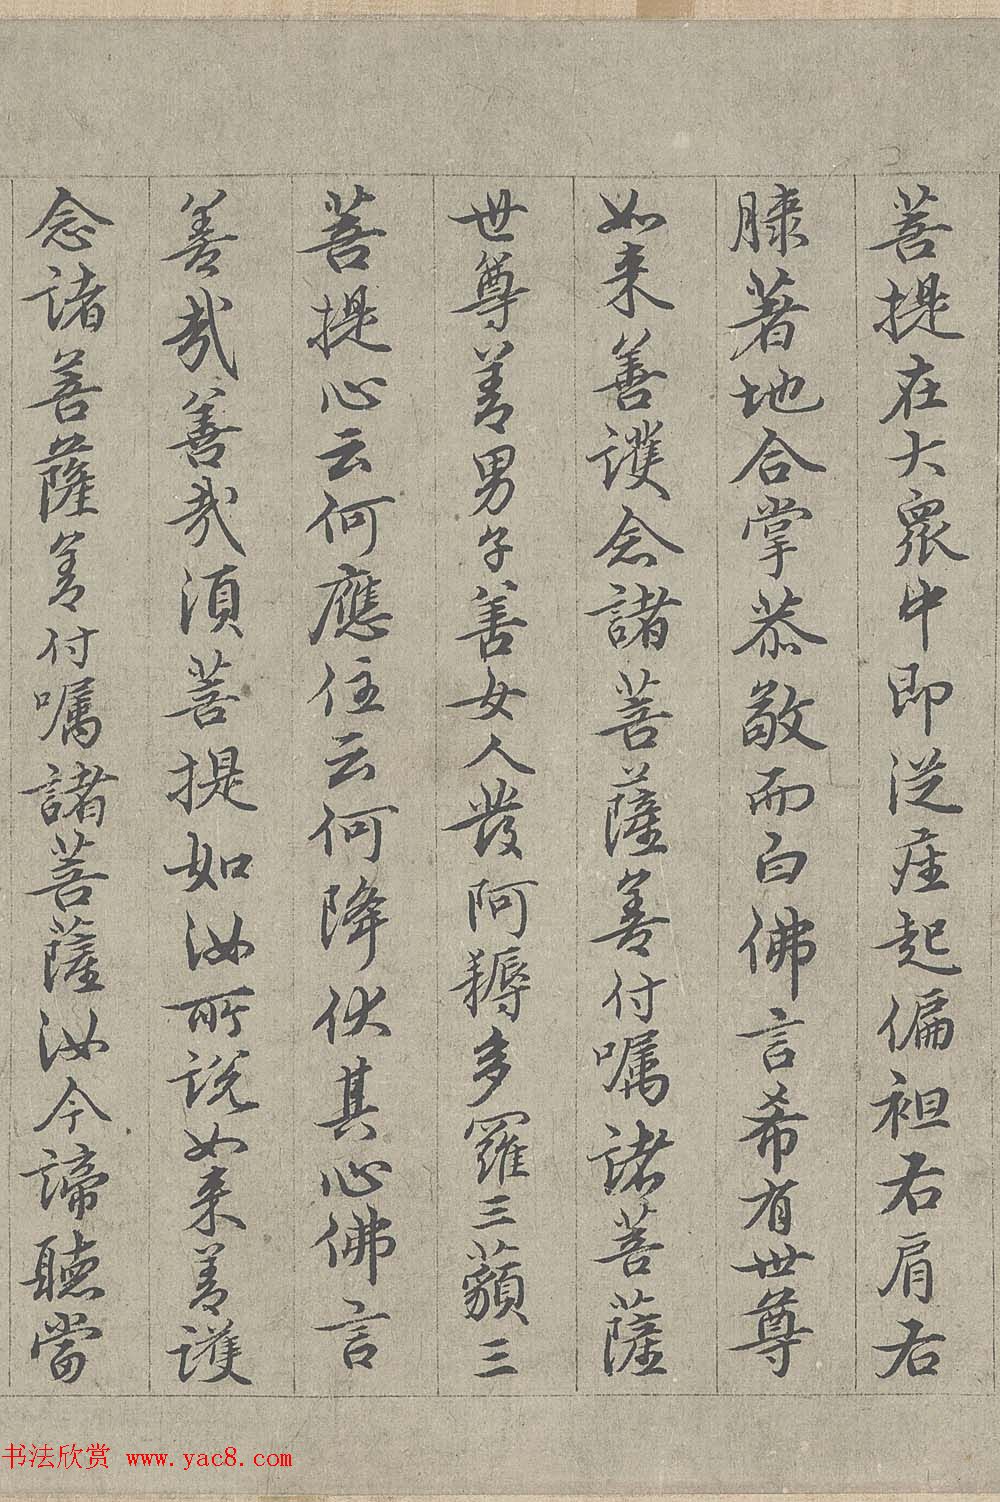 菩提在大衆中即從座起偏袒右肩右
膝著地合掌恭敬而白佛言希有世尊
如来善護念諸菩薩善付嘱諸菩薩
世尊善男子善女人發阿耨多羅三藐三
菩提心云何應住云何降伏其心佛言
善哉善哉須菩提如汝所説如来善護
念諸菩薩善付嘱諸菩薩汝今諦聽當
书法欣赏 www.yac8.com